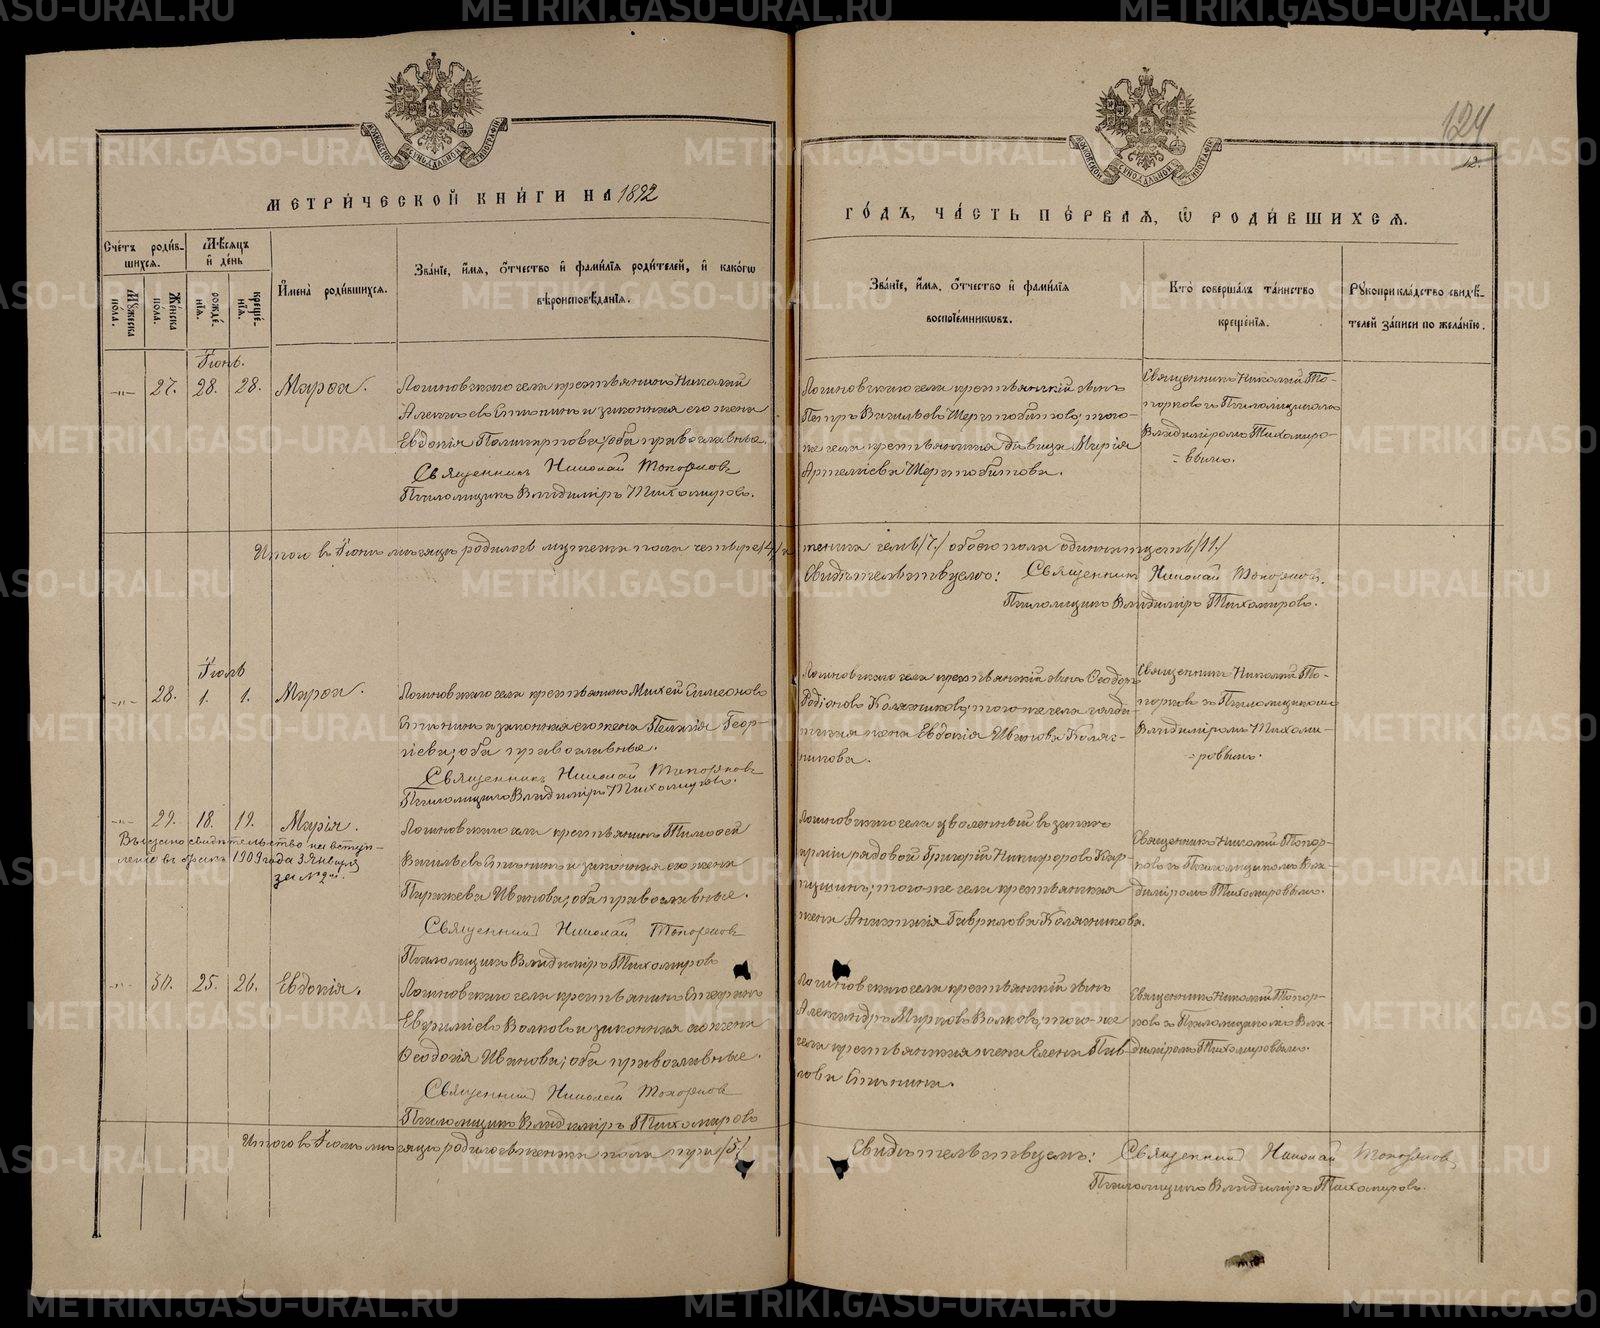 METRIKI.GASO-URAL.RU
124
12.
МОСКОВСКОЙ СѴНОДАЛЬНОЙ ТИПОГРАФІИ
МЕТРИ́ЧЕСКОЙ КНИ́ГИ НА 1892
ГО́ДЪ, ЧА́СТЬ ПЕ́РВАЯ, Ѡ РОДИ́ВШИХСЯ.
Сче́тъ роди́в-
шихся.
Мѣ́сяцъ
и де́нь
Му́жеска по́ла.
Же́нска по́ла.
рожде́-
нїя.
креще́-
нїя.
И́мена роди́вшихся.
Зва́нїе, и́мя, о́тчество и фами́лїя роди́телей, и како́гѡ
вѣроисповѣ́данїя.
Зва́нїе, и́мя, о́тчество и фами́лїя
воспрїе́мникѡвъ.
Кто̀ соверша́лъ та́инство
креще́нїя.
Рукоприкла́дство свидѣ́-
телей за́писи по жела́нїю.
Іюнь.
-"- 27. 28. 28. Марѳа.
Логиновскаго села крестьянинъ Николай
Алексѣевъ Стѣнинъ и законная его жена
Евдокія Поликарпова; оба православные.
Священникъ Николай Топорковъ
Псаломщикъ Владиміръ Тихомировъ.
Логиновскаго села крестьянскій сынъ
Петръ Васильевъ Шерстобитовъ; того-
же села крестьянская дѣвица Марія
Артеміева Шерстобитова.
Священникъ Николай То-
порковъ съ Псаломщикомъ
Владиміромъ Тихомиро-
=вымъ.
Итого въ Іюнѣ мѣсяцѣ родилось мужеска пола четыре /4/, женска семь /7/ обоего пола одиннадцать /11/
Свидѣтельствуемъ: Священникъ Николай Топорковъ.
Псаломщикъ Владиміръ Тихомировъ.
Іюль
-"- 28. 1. 1. Марѳа.
Логиновскаго села крестьянинъ Михей Симеоновъ
Стѣнинъ и законная его жена Пелагія Геор-
гіева; оба православные.
Священникъ Николай Топорковъ
Псаломщикъ Владиміръ Тихомировъ.
Логиновскаго села крестьянскій сынъ Ѳеодоръ
Родіоновъ Колясниковъ; того же села солда-
тская жена Евдокія Иванова Коляс-
никова.
Священникъ Николай То-
порковъ съ Псаломщикомъ
Владиміромъ Тихоми-
=ровымъ.
-"- 29. 18. 19. Марія.
Выдано свидѣтельство на вступ-
леніе въ бракъ 1909 года 3 Января
за №
Логиновскаго села крестьянинъ Тимоѳей
Васильевъ Стѣнинъ и законная его жена
Параскева Иванова; оба православные.
Священникъ Николай Топорковъ
Псаломщикъ Владиміръ Тихомировъ
Логиновскаго села уволенный въ запасъ
арміи рядовой Григорій Никифоровъ
того же села крестьянская
жена Анастасія Гаврилова Колясникова.
Священникъ Николай Топор-
ковъ съ Псаломщикомъ Вла-
диміромъ Тихомировымъ.
-"- 30. 25. 26. Евдокія.
Логиновскаго села крестьянинъ Стефанъ
Евѳиміевъ Волковъ и законная его жена
Ѳеодосія Иванова; оба православные.
Священникъ Николай Топорковъ
Псаломщикъ Владиміръ Тихомировъ
Логиновскаго села крестьянскій сынъ
Александръ Марковъ Волковъ; того-же
села крестьянская жена Елена Пав-
лова Стѣнина.
Священникъ Николай Топор-
ковъ съ Псаломщикомъ Вла-
диміромъ Тихомировымъ.
Итого въ Іюлѣ мѣсяцѣ родилось женска пола три /3/
Свидѣтельствуемъ: Священникъ Николай Топорковъ,
Псаломщикъ Владиміръ Тихомировъ.